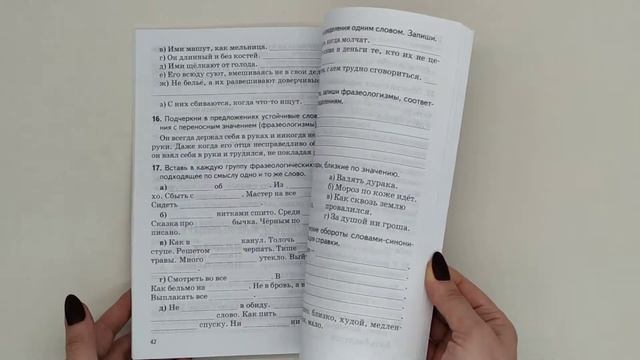 в) Ими машут, как мельница.
г) Он длинный и без костей.
д) Ими щёлкают от голода.
е) Его всюду суют, вмешиваясь не в свои дел
ж) Не бельё, а их развешивают доверчивые
з) С них сбиваются, когда что-то ищут.
16. Подчеркни в предложениях устойчивые слово
ния с переносным значением (фразеологизмы)
Он всегда держал себя в руках и никогда не
руки. Даже когда его отца несправедливо об
он взял себя в руки и трудился, не покладая р
17. Вставь в каждую группу фразеологически
подходящее по смыслу одно и то же слово.
а) об . Из
хо. Сбыть с . Мастер на все
Сидеть
б) нитками сшито. Среди
Сказка про бычка. Чёрным по
писано.
в) Как в канул. Толочь
ступе. Решетом черпать. Тише
травы. Много утекло. Выйт
г) Смотреть во все . В
Как бельмо на . Не в бровь, а в
Выплакать все .
д) Не в обиду.
слово. Как пить
спуску. Ни ни
42
пределения одним словом. Запиши.
когда молчат.
в деньги те, кто их не це-
с ем трудно сговориться.
запиши фразеологизмы, соответ-
делениям.
ры, близкие по значению.
а) Валять дурака.
б) Мороз по коже идёт.
в) Как сквозь землю
провалился.
г) За душой ни гроша.
ские обороты словами-синони-
для справки.
близко, худой, медлен-
мало.